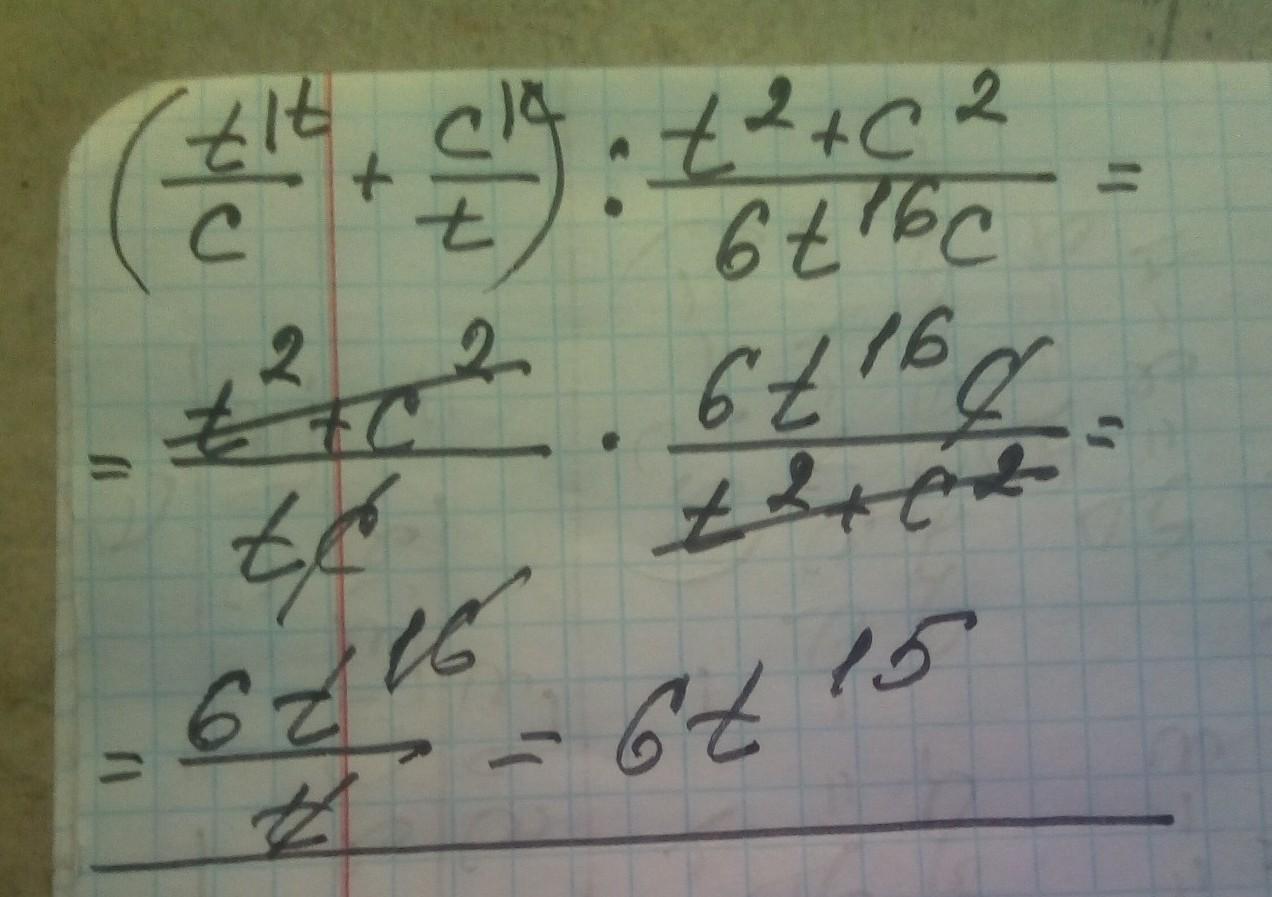 (t|t/c + c|c/t) : t²+c²/6t¹⁶c =
= t²+c²/tc · 6t¹⁶c/t²+c² =
= 6t¹⁶/t = 6t¹⁵